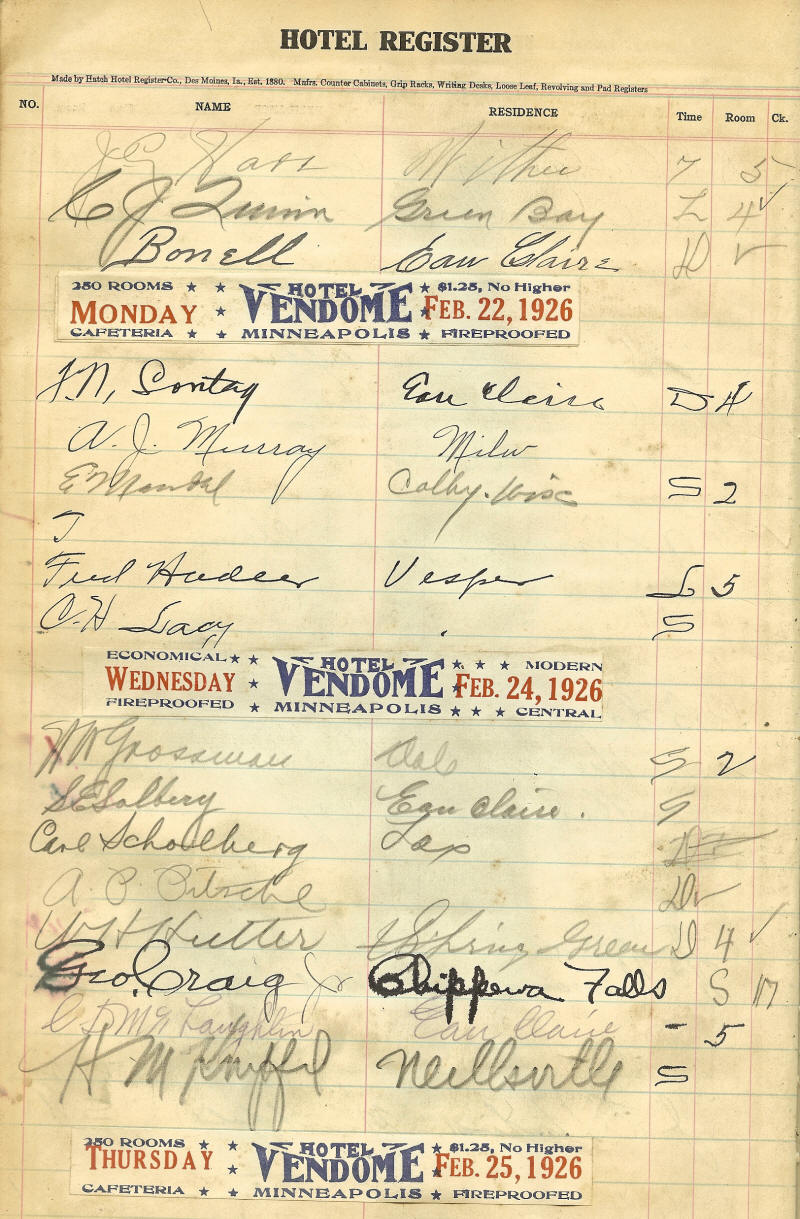 HOTEL REGISTER
Made by Hatch Hotel Register Co., Des Moines, Ia., Est. 1880. Mafrs. Counter Cabinets, Grip Racks, Writing Desks, Loose Leaf, Revolving and Pad Registers
NO. NAME RESIDENCE Time Room Ck.
Withee 7 5
C J Quinn Green Bay L 4 ✓
Bonell Eau Claire D ✓
250 ROOMS ★ ★ HOTEL ★ $1.25, No Higher
MONDAY ★ VENDOME ★ FEB. 22, 1926
CAFETERIA ★ ★ MINNEAPOLIS ★ FIREPROOFED
Sontag Eau Claire D 4
A. J. Murray Milw
E Mandel Colby. Wisc S 2
T
Fred Vesper L 5
C. H Lacy . S
ECONOMICAL ★ ★ HOTEL ★ ★ ★ MODERN
WEDNESDAY ★ VENDOME ★ FEB. 24, 1926
FIREPROOFED ★ MINNEAPOLIS ★ ★ ★ CENTRAL
Grossman S 2
S E Solberg Eau Claire. S
Carl Schoelberg Lax
A. P. Pitsche D ✓
W H Hutter Spring Green D 4 ✓
Geo. Craig Jr Chippewa Falls S 17
C H McLaughlin Eau Claire - 5
H M Neillsville S
250 ROOMS ★ ★ HOTEL ★ $1.25, No Higher
THURSDAY ★ VENDOME ★ FEB. 25, 1926
CAFETERIA ★ ★ MINNEAPOLIS ★ FIREPROOFED